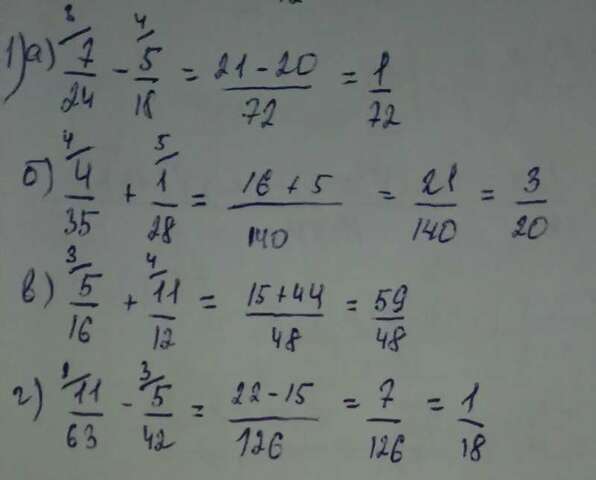 1) а) 3/ 7/24 - 4/ 5/18 = 21 - 20/72 = 1/72
б) 4/ 4/35 + 5/ 1/28 = 16 + 5/140 = 21/140 = 3/20
в) 3/ 5/16 + 4/ 11/12 = 15 + 44/48 = 59/48
г) 11/63 - 3/ 5/42 = 22 - 15/126 = 7/126 = 1/18